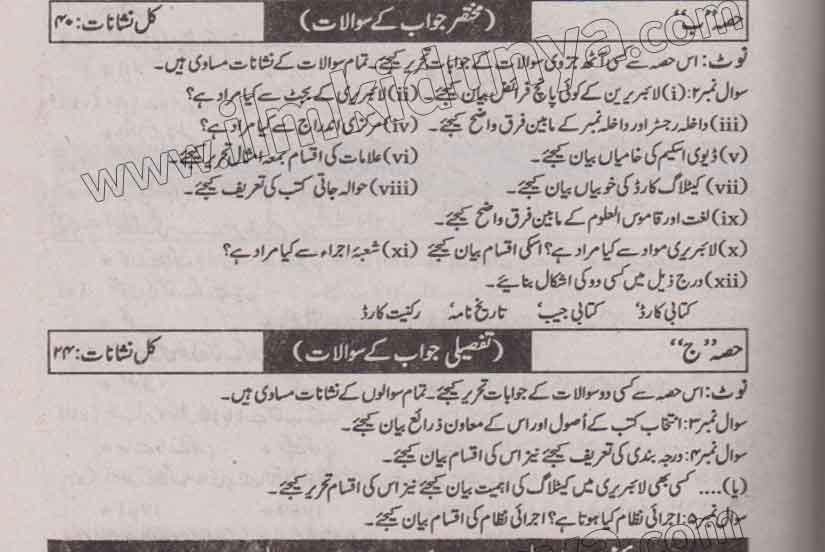 حصہ "ب" (مختصر جواب کے سوالات) کل نشانات: ۴۰
نوٹ: اس حصہ سے کسی آٹھ جزوی سوالات کے جوابات تحریر کیجئے۔ تمام سوالات کے نشانات مساوی ہیں۔
سوال نمبر۲: (i) لائبریرین کے کوئی پانچ فرائض بیان کیجئے۔ (ii) لائبریری کے بجٹ سے کیا مراد ہے؟
(iii) داخلہ رجسٹر اور داخلہ نمبر کے مابین فرق واضح کیجئے۔ (iv) مرکزی اندراج سے کیا مراد ہے؟
(v) ڈیوی اسکیم کی خامیاں بیان کیجئے۔ (vi) علامات کی اقسام بمعہ امثال تحریر کیجئے۔
(vii) کیٹلاگ کارڈ کی خوبیاں بیان کیجئے۔ (viii) حوالہ جاتی کتب کی تعریف کیجئے۔
(ix) لغت اور قاموس العلوم کے مابین فرق واضح کیجئے۔
(x) لائبریری مواد سے کیا مراد ہے؟ اسکی اقسام بیان کیجئے (xi) شعبۂ اجراء سے کیا مراد ہے؟
(xii) درج ذیل میں کسی دو کی اشکال بنائیے۔
کتابی کارڈ، کتابی جیب، تاریخ نامہ، رکنیت کارڈ
حصہ "ج" (تفصیلی جواب کے سوالات) کل نشانات: ۲۴
نوٹ: اس حصہ سے کسی دو سوالات کے جوابات تحریر کیجئے۔ تمام سوالوں کے نشانات مساوی ہیں۔
سوال نمبر۳: انتخاب کتب کے اُصول اور اس کے معاون ذرائع بیان کیجئے۔
سوال نمبر۴: درجہ بندی کی تعریف کیجئے نیز اس کی اقسام بیان کیجئے۔
(یا).... کسی بھی لائبریری میں کیٹلاگ کی اہمیت بیان کیجئے نیز اس کی اقسام تحریر کیجئے۔
سوال نمبر۵: اجرائی نظام کیا ہوتا ہے؟ اجرائی نظام کی اقسام بیان کیجئے۔
www.ilmkidunya.com